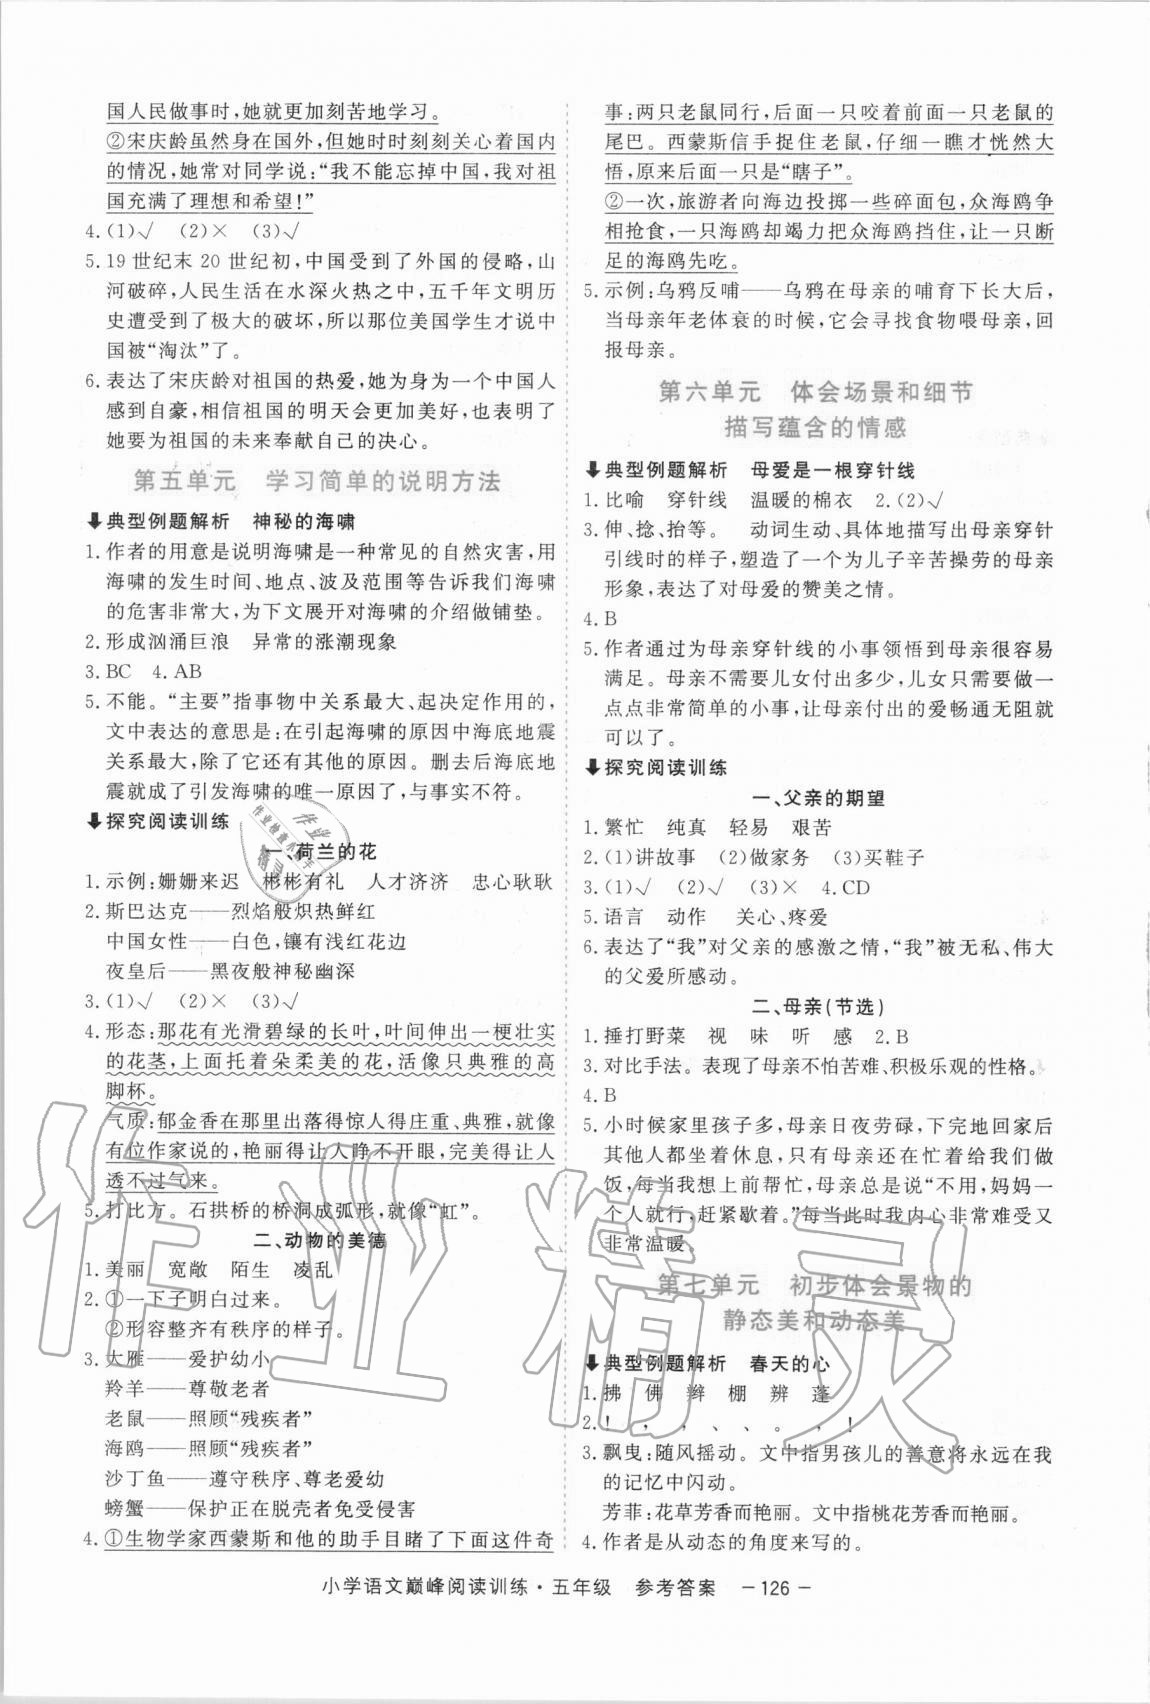 国人民做事时,她就更加刻苦地学习。
②宋庆龄虽然身在国外,但她时时刻刻关心着国内
的情况,她常对同学说:“我不能忘掉中国,我对祖
国充满了理想和希望!”
4. (1)√ (2)× (3)√
5. 19 世纪末 20 世纪初,中国受到了外国的侵略,山
河破碎,人民生活在水深火热之中,五千年文明历
史遭受到了极大的破坏,所以那位美国学生才说中
国被“淘汰”了。
6. 表达了宋庆龄对祖国的热爱,她为身为一个中国人
感到自豪,相信祖国的明天会更加美好,也表明了
她要为祖国的未来奉献自己的决心。
第五单元 学习简单的说明方法
典型例题解析 神秘的海啸
1. 作者的用意是说明海啸是一种常见的自然灾害,用
海啸的发生时间、地点、波及范围等告诉我们海啸
的危害非常大,为下文展开对海啸的介绍做铺垫。
2. 形成汹涌巨浪 异常的涨潮现象
3. BC 4. AB
5. 不能。“主要”指事物中关系最大、起决定作用的,
文中表达的意思是:在引起海啸的原因中海底地震
关系最大,除了它还有其他的原因。删去后海底地
震就成了引发海啸的唯一原因了,与事实不符。
探究阅读训练
一、荷兰的花
1. 示例:姗姗来迟 彬彬有礼 人才济济 忠心耿耿
2. 斯巴达克——烈焰般炽热鲜红
中国女性——白色,镶有浅红花边
夜皇后——黑夜般神秘幽深
3. (1)√ (2)× (3)√
4. 形态:那花有光滑碧绿的长叶,叶间伸出一梗壮实
的花茎,上面托着朵柔美的花,活像只典雅的高
脚杯。
气质:郁金香在那里出落得惊人得庄重、典雅,就像
有位作家说的,艳丽得让人睁不开眼,完美得让人
透不过气来。
5. 打比方。石拱桥的桥洞成弧形,就像“虹”。
二、动物的美德
1. 美丽 宽敞 陌生 凌乱
2. ①一下子明白过来。
②形容整齐有秩序的样子。
3. 大雁——爱护幼小
羚羊——尊敬老者
老鼠——照顾“残疾者”
海鸥——照顾“残疾者”
沙丁鱼——遵守秩序、尊老爱幼
螃蟹——保护正在脱壳者免受侵害
4. ①生物学家西蒙斯和他的助手目睹了下面这件奇
事:两只老鼠同行,后面一只咬着前面一只老鼠的
尾巴。西蒙斯信手捉住老鼠,仔细一瞧才恍然大
悟,原来后面这只是“瞎子”。
②一次,旅游者向海边投掷一些碎面包,众海鸥争
相抢食,一只海鸥却竭力把众海鸥挡住,让一只断
足的海鸥先吃。
5. 示例:乌鸦反哺——乌鸦在母亲的哺育下长大后,
当母亲年老体衰的时候,它会寻找食物喂母亲,回
报母亲。
第六单元 体会场景和细节
描写蕴含的情感
典型例题解析 母爱是一根穿针线
1. 比喻 穿针线 温暖的棉衣 2. (2)√
3. 伸、捻、抬等。 动词生动、具体地描写出母亲穿针
引线时的样子,塑造了一个为儿子辛苦操劳的母亲
形象,表达了对母爱的赞美之情。
4. B
5. 作者通过为母亲穿针线的小事领悟到母亲很容易
满足。母亲不需要儿女付出多少,儿女只需要做一
点点非常简单的小事,让母亲付出的爱畅通无阻就
可以了。
探究阅读训练
一、父亲的期望
1. 繁忙 纯真 轻易 艰苦
2. (1)讲故事 (2)做家务 (3)买鞋子
3. (1)√ (2)√ (3)× 4. CD
5. 语言 动作 关心、疼爱
6. 表达了“我”对父亲的感激之情,“我”被无私、伟大
的父爱所感动。
二、母亲(节选)
1. 捶打野菜 视 味 听 感 2. B
3. 对比手法。表现了母亲不怕苦难、积极乐观的性格。
4. B
5. 小时候家里孩子多,母亲日夜劳碌,下完地回家后
其他人都坐着休息,只有母亲还在忙着给我们做
饭,每当我想上前帮忙,母亲总是说“不用,妈妈一
个人就行,赶紧歇着。”每当此时我内心非常难受又
非常温暖。
第七单元 初步体会景物的
静态美和动态美
典型例题解析 春天的心
1. 拂 佛 辫 棚 辨 蓬
2. ! , , 、 、 。 , !
3. 飘曳:随风摇动。文中指男孩儿的善意将永远在我
的记忆中闪动。
芳菲:花草芳香而艳丽。文中指桃花芳香而艳丽。
4. 作者是从动态的角度来写的。
小学语文巅峰阅读训练·五年级 参考答案 －126－
作业精灵
作业
作业检查小帮手
精灵